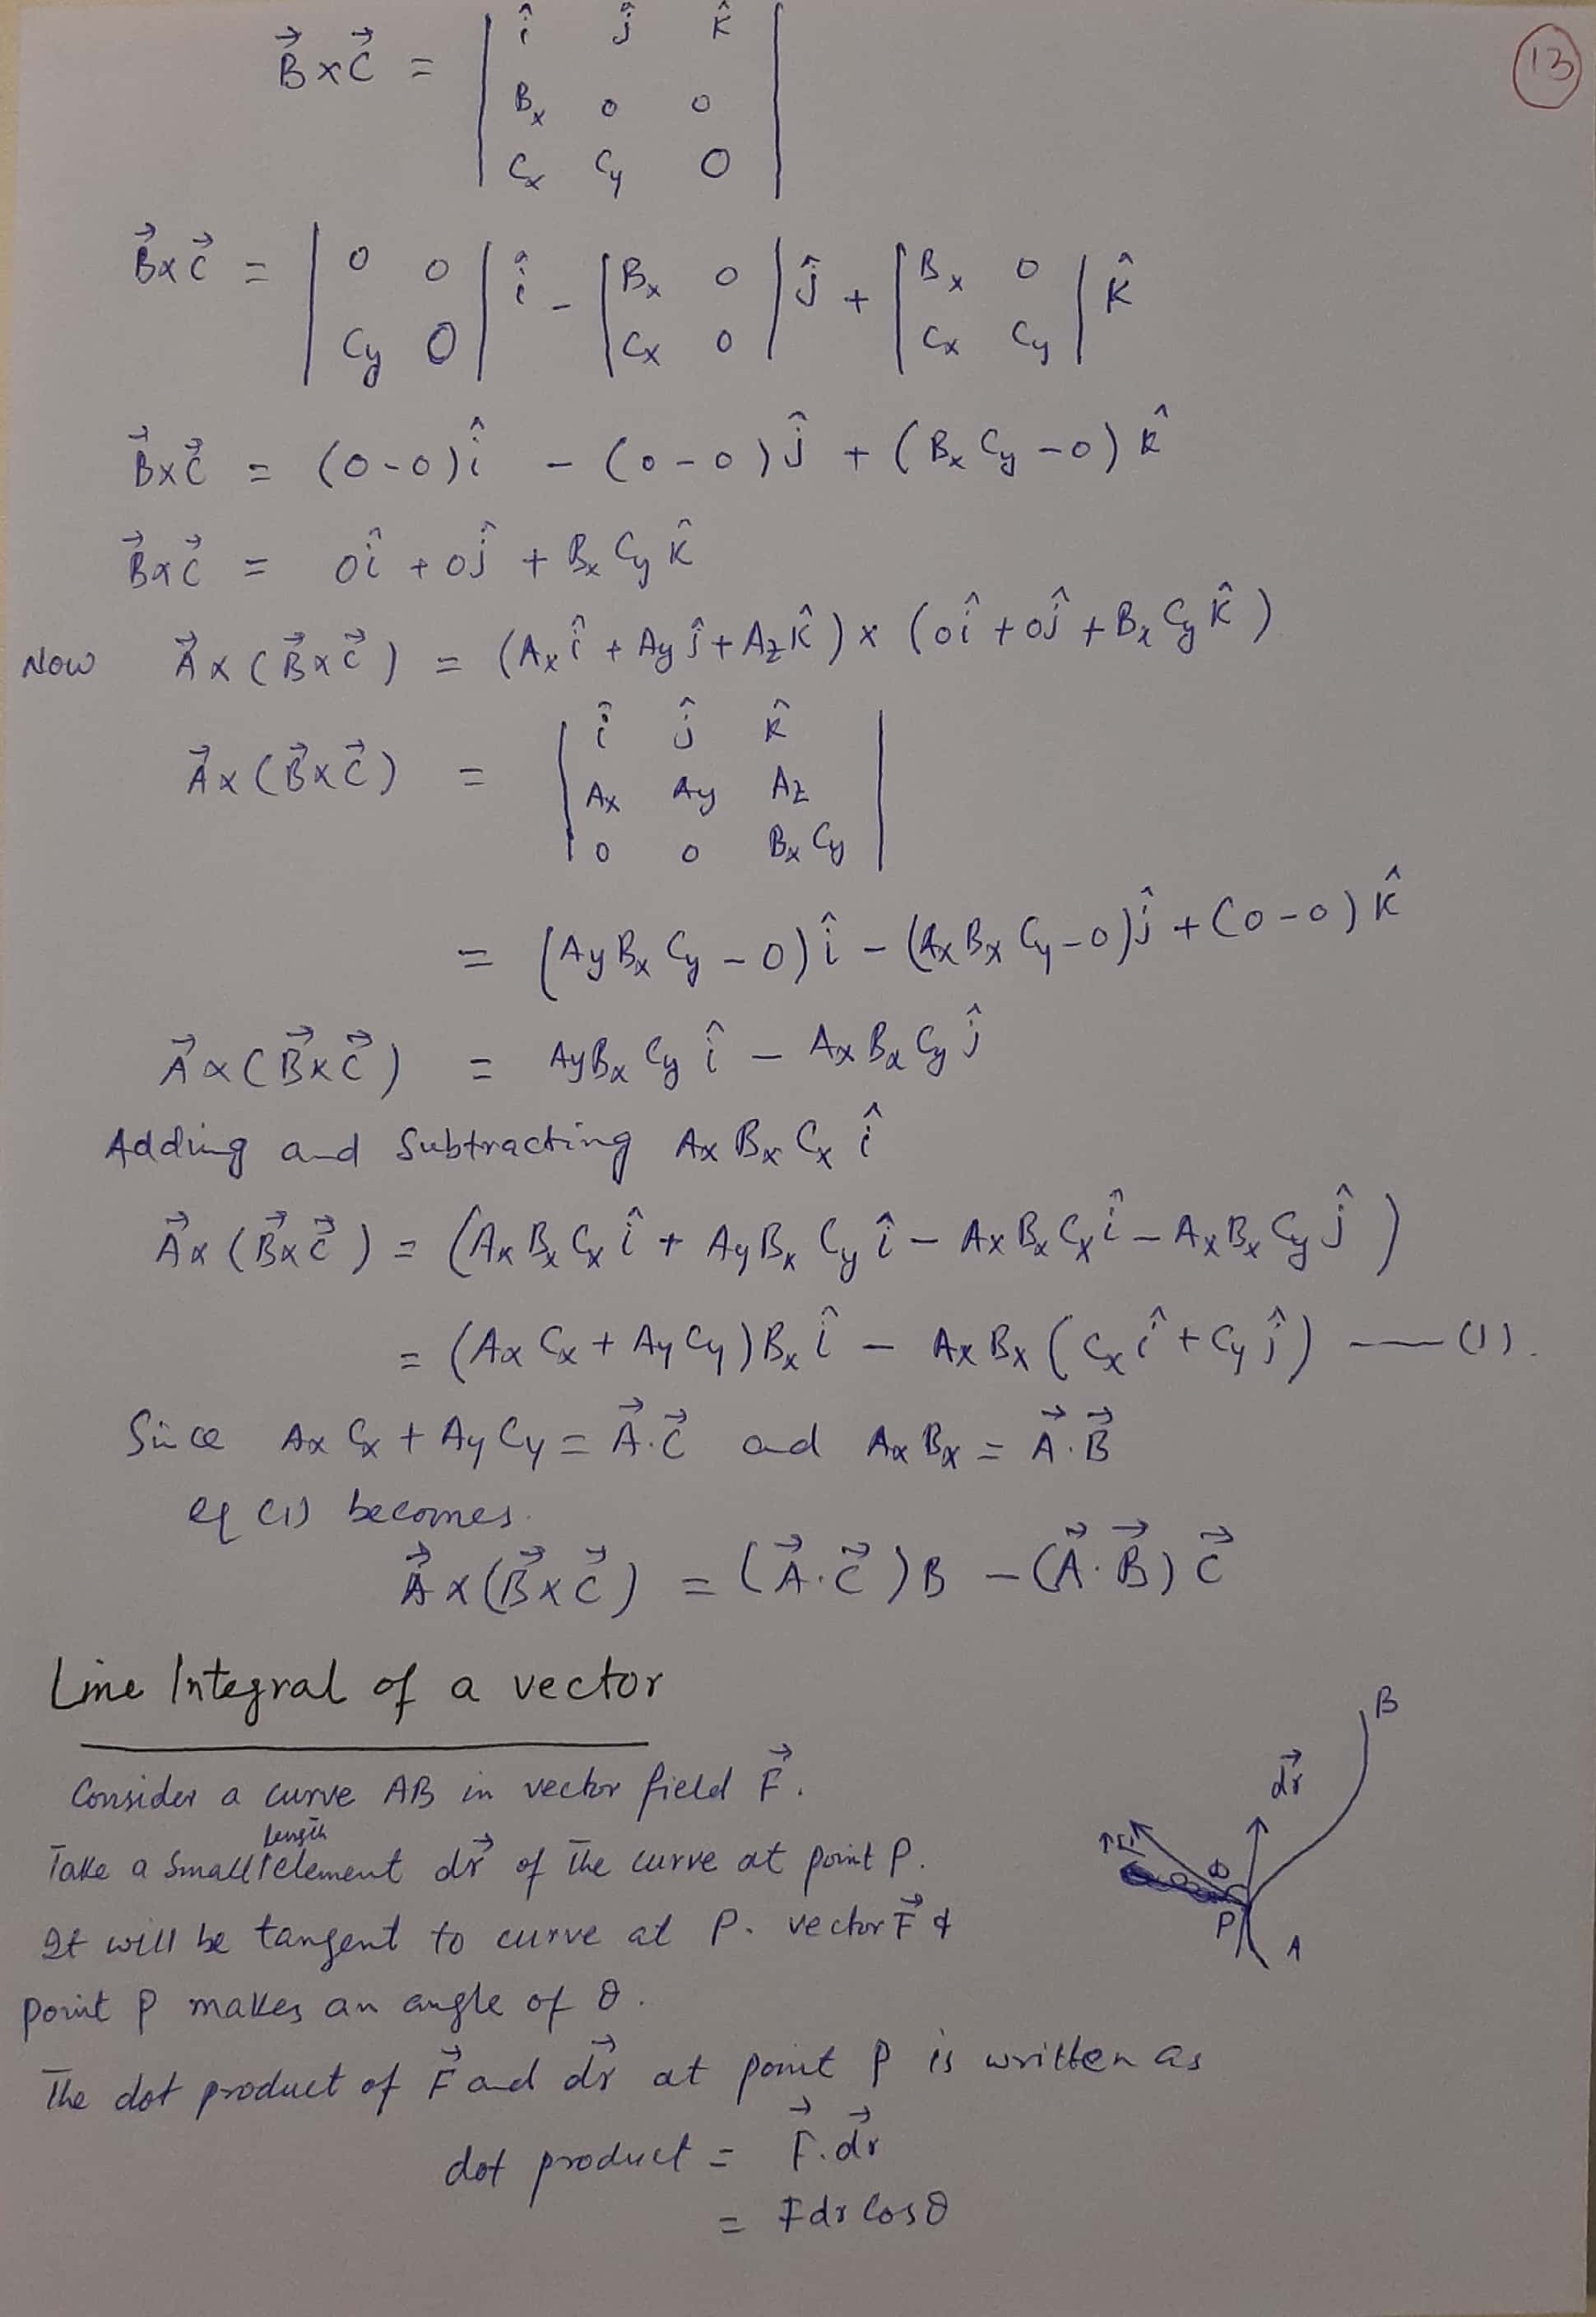 13
B⃗×C⃗ = | î ĵ k̂ |
| Bx 0 0 |
| Cx Cy 0 |
B⃗×C⃗ = | 0 0 | î - | Bx 0 | ĵ + | Bx 0 | k̂
| Cy 0 | | Cx 0 | | Cx Cy |
B⃗×C⃗ = (0-0)î - (0-0)ĵ + (Bx Cy -0) k̂
B⃗×C⃗ = 0î + 0ĵ + Bx Cy k̂
Now A⃗×(B⃗×C⃗) = (Ax î + Ay ĵ + Az k̂) × (0î + 0ĵ + Bx Cy k̂)
A⃗×(B⃗×C⃗) = | î ĵ k̂ |
| Ax Ay Az |
| 0 0 Bx Cy |
= (Ay Bx Cy - 0) î - (Ax Bx Cy - 0)ĵ + (0-0) k̂
A⃗×(B⃗×C⃗) = Ay Bx Cy î - Ax Bx Cy ĵ
Adding and Subtracting Ax Bx Cx î
A⃗×(B⃗×C⃗) = (Ax Bx Cx î + Ay Bx Cy î - Ax Bx Cx î - Ax Bx Cy ĵ)
= (Ax Cx + Ay Cy) Bx î - Ax Bx (Cx î + Cy ĵ) — (1).
Since Ax Cx + Ay Cy = A⃗.C⃗ and Ax Bx = A⃗.B⃗
eq (1) becomes.
A⃗×(B⃗×C⃗) = (A⃗.C⃗)B - (A⃗.B⃗)C⃗
Line Integral of a vector
Consider a curve AB in vector field F⃗.
Take a Small length element dr⃗ of the curve at point P.
It will be tangent to curve at P. vector F⃗ &
point P makes an angle of θ.
The dot product of F⃗ and dr⃗ at point P is written as
dot product = F⃗.dr⃗
= F dr Cosθ
B
dr⃗
F⃗
θ
P
A